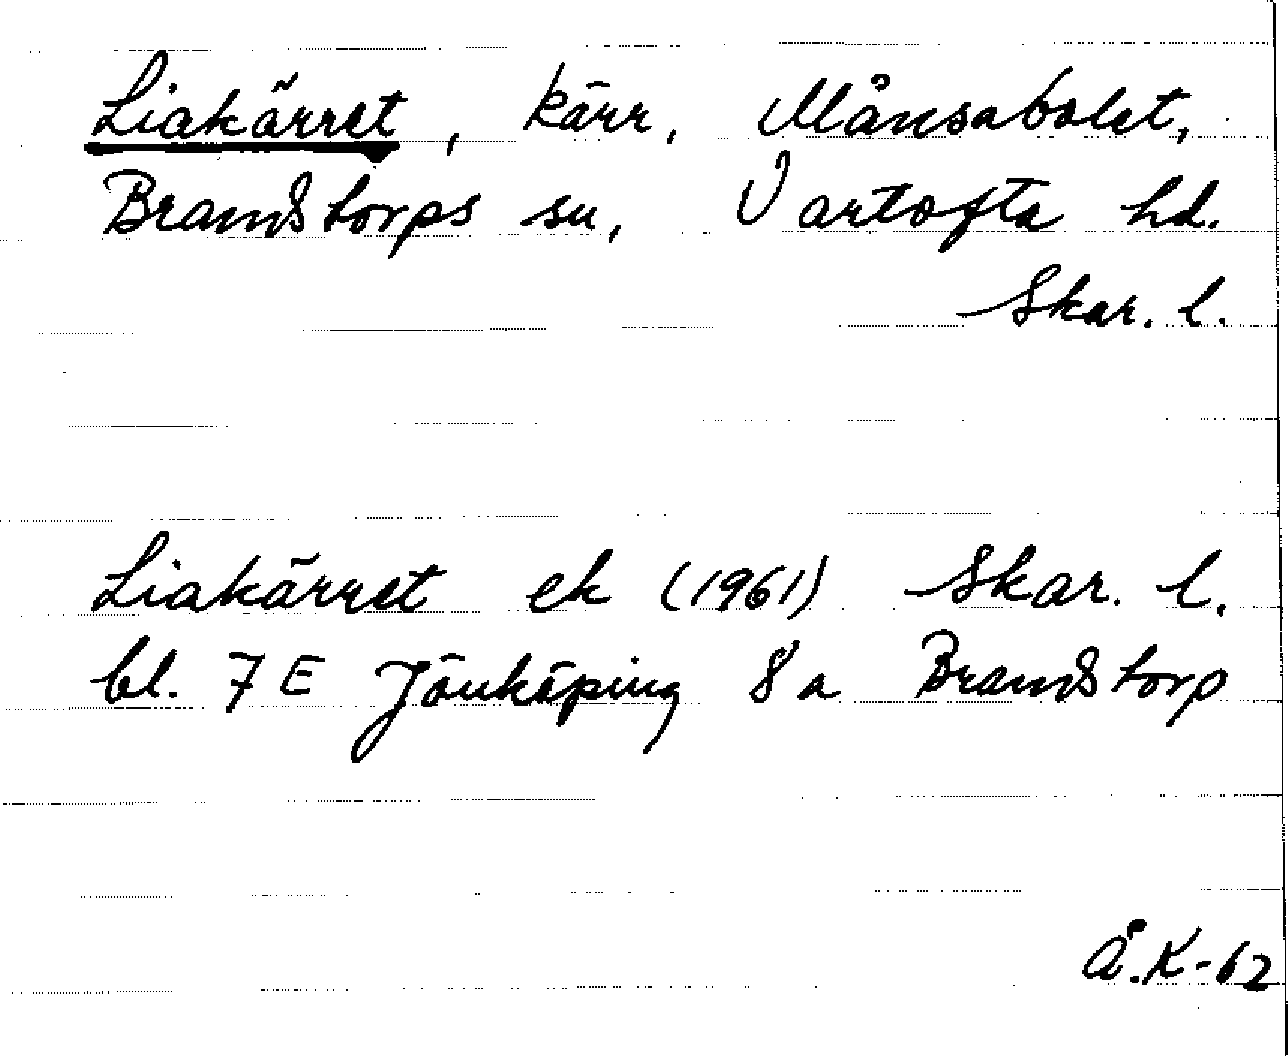 Liakärret, kärr, Månsabolet,
Brandstorps sn, Vartofta hd.
Skar. l.
Liakärret ek (1961) Skar. l.
bl. 7E Jönköping 8a Brandstorp
Å.K-62